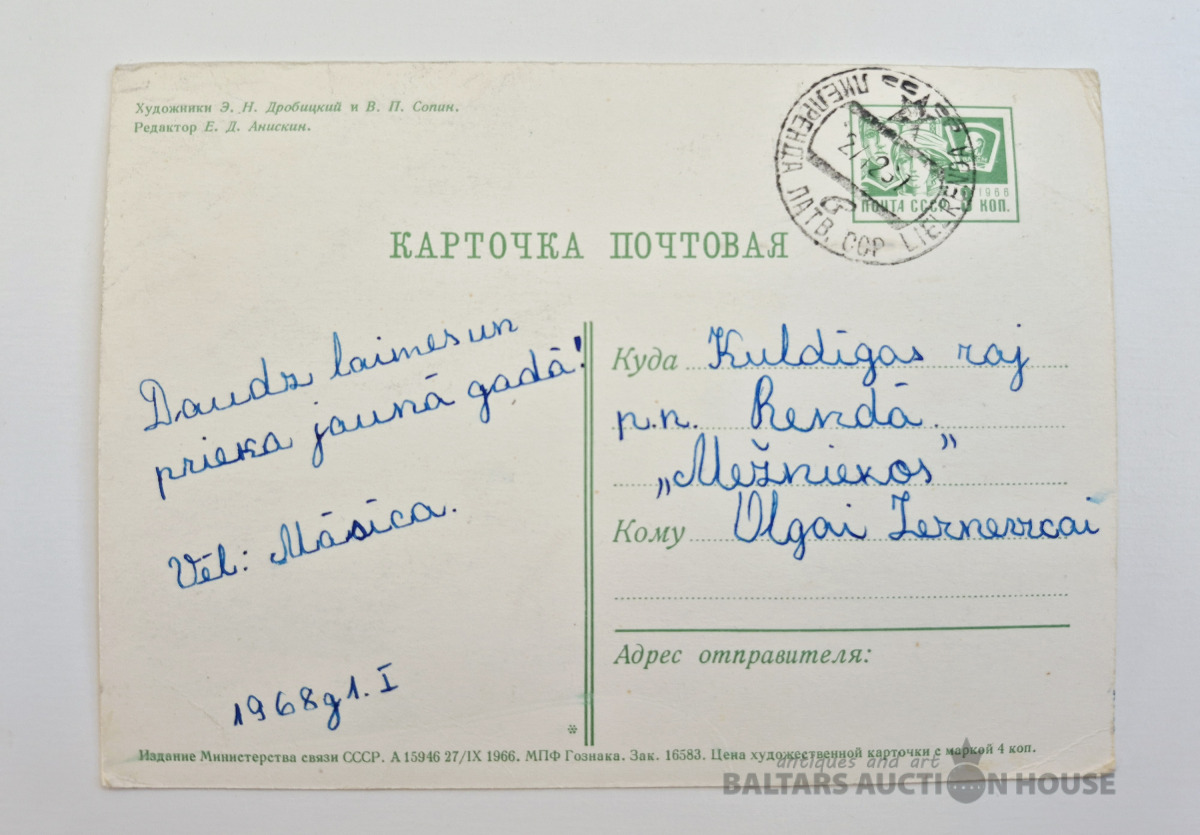 Художники Э. Н. Дробицкий и В. П. Сопин.
Редактор Е. Д. Анискин.
ЛИЕЛРЕНДА ЛАТВ. ССР LIELRENDA
1966
ПОЧТА СССР 3 КОП.
КАРТОЧКА ПОЧТОВАЯ
Daudz laimes un
prieka jaunā gadā!
Vēl: Māsica.
1968g 1. I
Куда Kuldīgas raj
p.n. Rendā.
„Mežniekos”
Кому Olgai
Адрес отправителя:
*
Издание Министерства связи СССР. А 15946 27/IX 1966. МПФ Гознака. Зак. 16583. Цена художественной карточки с маркой 4 коп.
antiques and art
BALTARS AUCTION HOUSE